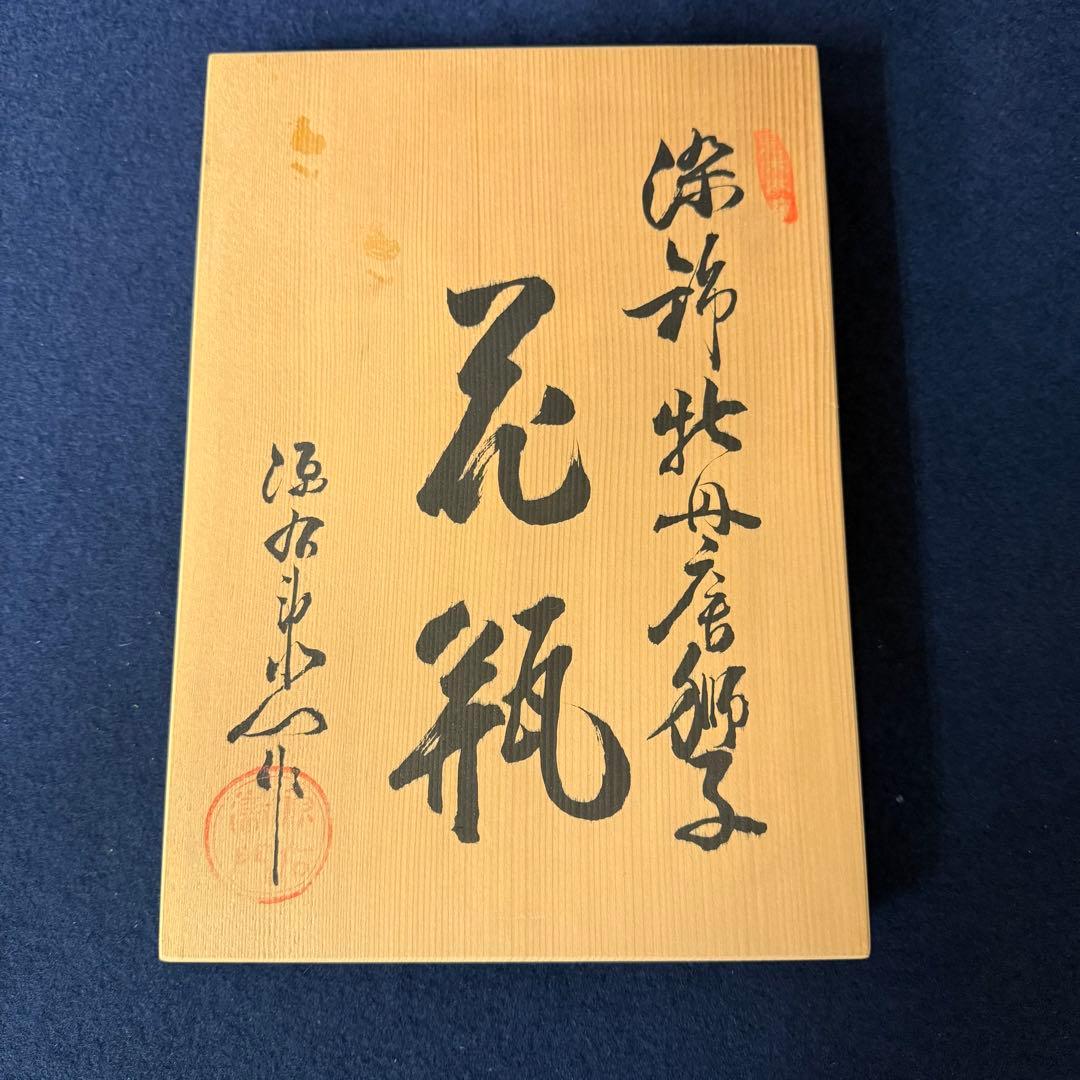 染錦牡丹唐獅子
花瓶
源右衛門作